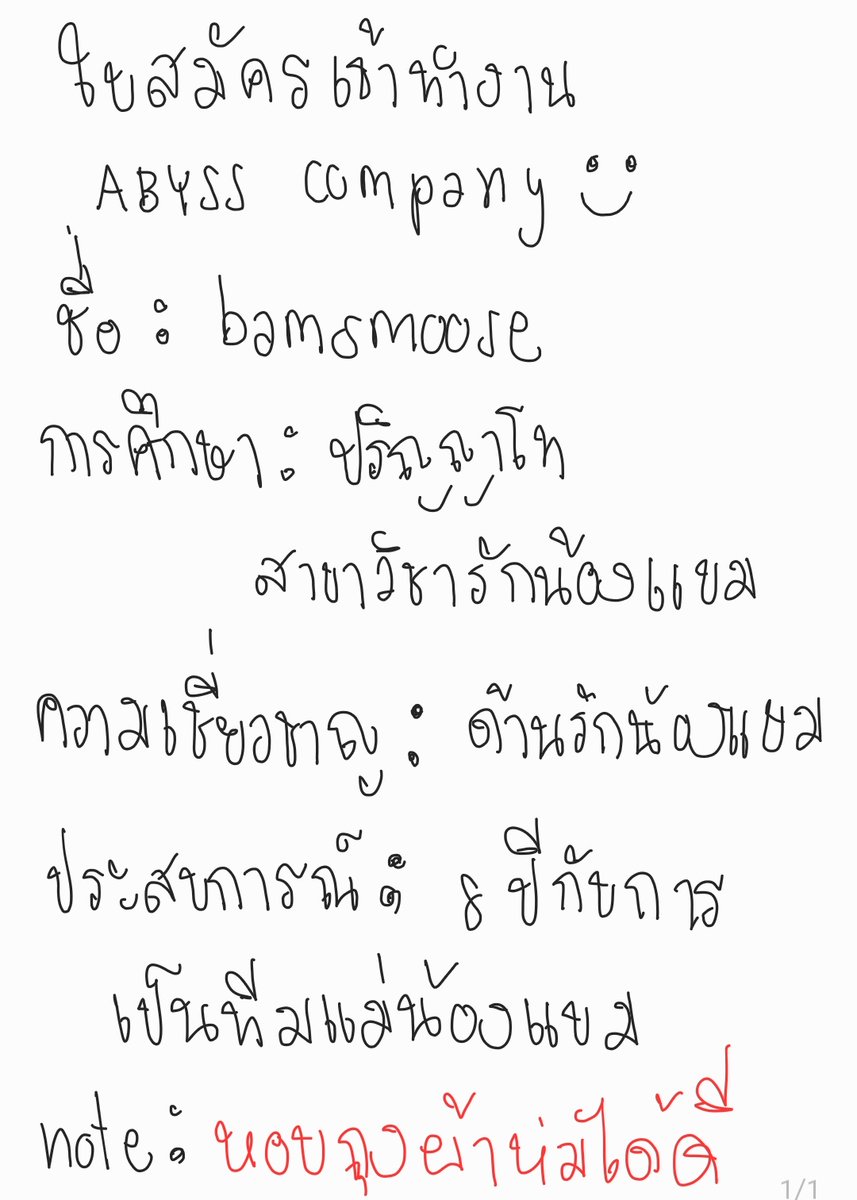 ใบสมัครเข้าทำงาน
ABYSS company
ชื่อ : bamsmoose
การศึกษา : ปริญญาโท
สาขาวิชารักน้องแยม
ความเชี่ยวชาญ : ด้านรักน้องแยม
ประสบการณ์ : 8 ปีกับการ
เป็นทีมแม่น้องแยม
note : หอบถุงผ้าห่มได้ดี
1/1